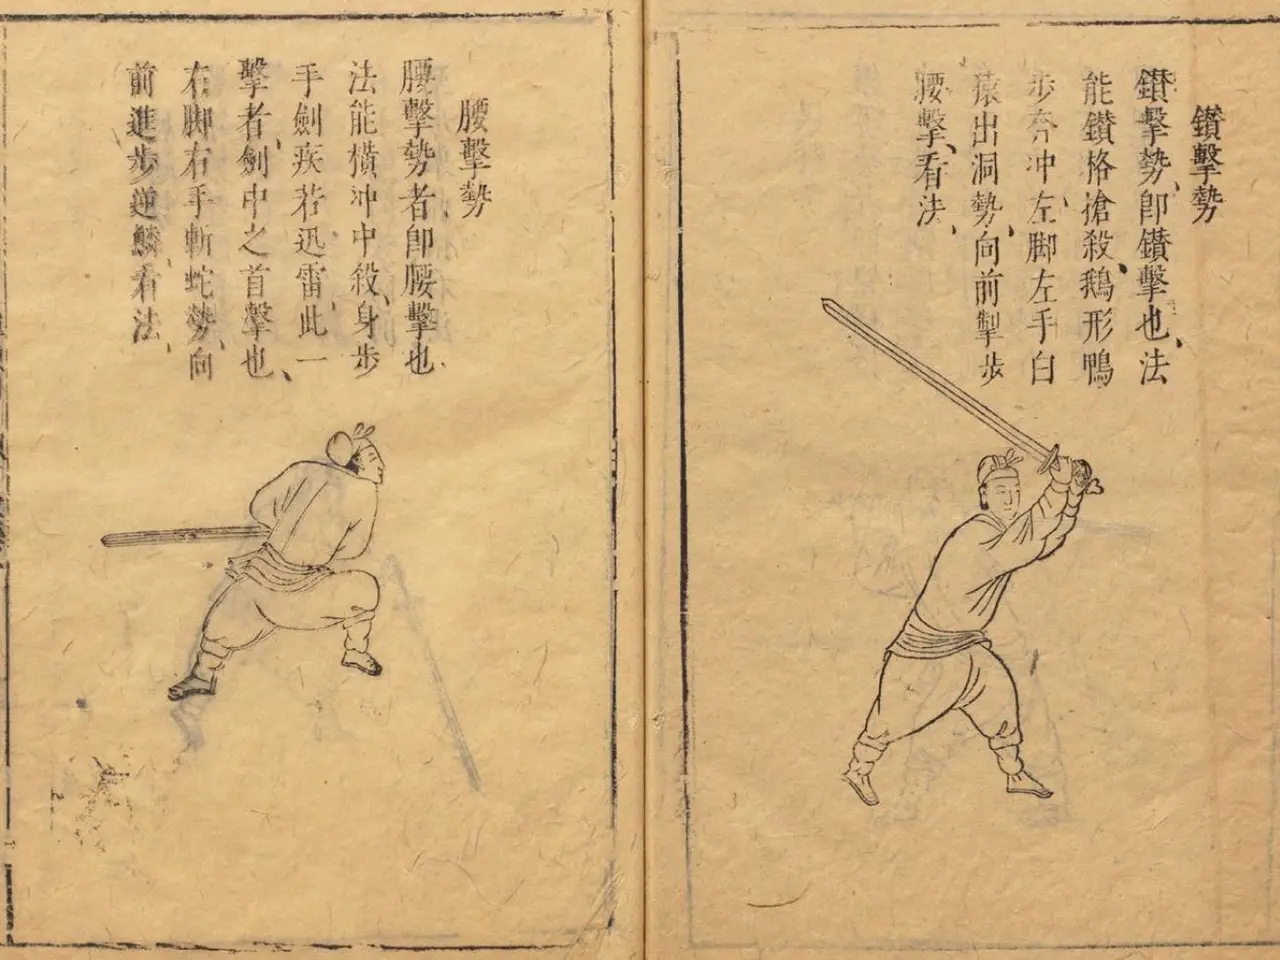 鑚擊勢
鑚擊勢、卽鑚擊也、法
能鑚格搶殺、鵝形鴨
步奔冲、左脚左手白
猿出洞勢、向前掣步
腰擊、看法、
腰擊勢
腰擊勢者、卽腰擊也
法能橫冲中殺、身步
手劍疾若迅雷、此一
擊者、劍中之首擊也、
右脚右手斬蛇勢、向
前進步逆鱗、看法、